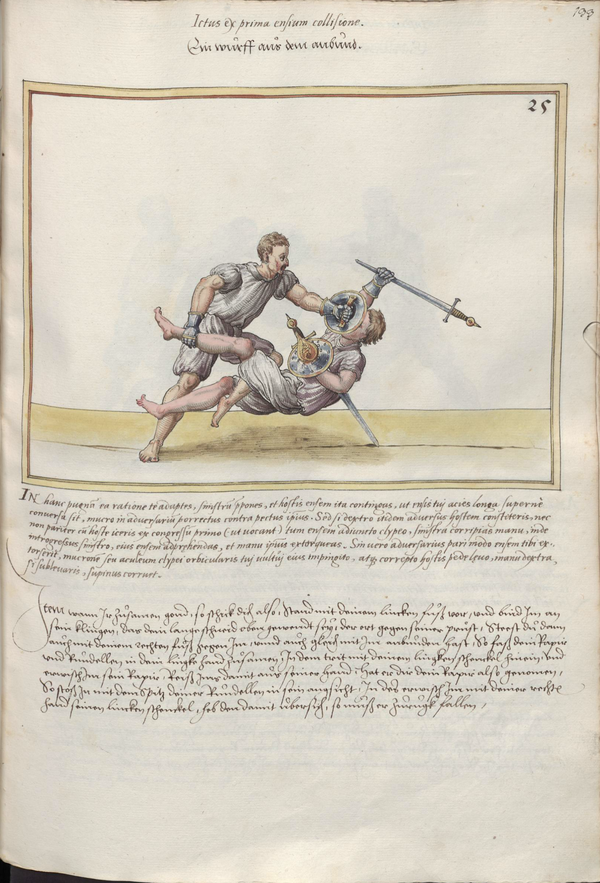 133
Ictus ex prima ensium collisione.
Ein wurff aus dem anbund.
25
IN hanc pugnã ea ratione te adaptes, sinistrũ ppones, et hostis ensem ita continges, ut ensis tui acies longa superne
conversa sit, mucro in adversariũ porrectus contra pectus ipsius. Sed si dextro itidem adversus hostem consteteris, nec
non pariter cũ hoste iceris ex congressu primo (ut vocant) tum ensem adiuncto clypeo, sinistra corripias manu, inde
introgressus sinistro, eius ensem adprehendas, et manu ipsius extorqueas. Sin vero adversarius pari modo ensem tibi ex-
torserit, mucronẽ seu aculeum clypei orbicularis tui vultui eius impingito, atq; correpto hostis pede levo, manu dextra,
si sublevaris, supinus corruet.
Item wann Ir zusamen gond, so schick dich also, Stand mit deinem lincken fuss vor, und bind Im an
sein klingen, das dein lange schneid oben gewendt sey, der ort gegen seiner prust, Steest du dann
auch mit deinem rechten fuss gegen Im, und auch gleich mit Im anbunden hast, So fass dein Rapir
und Rundellen in dein lingke hand zusamen, In dem trit mit deinem lingken schenckel hinein, und
erwisch Im sein Rapir, Reiss Ims damit aus seiner hand, hat er dir dein Rapir also genomen,
So stoss In mit dem spitz deiner Rundellen in sein angsicht, In des erwisch Im mit deiner rechten
hand seinen lincken schenckel, heb den damit ubersich, so muss er zurugk fallen,